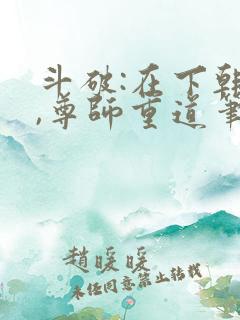 斗破:在下韩
,尊师重道筆
趙暖暖
未经同意禁止转载